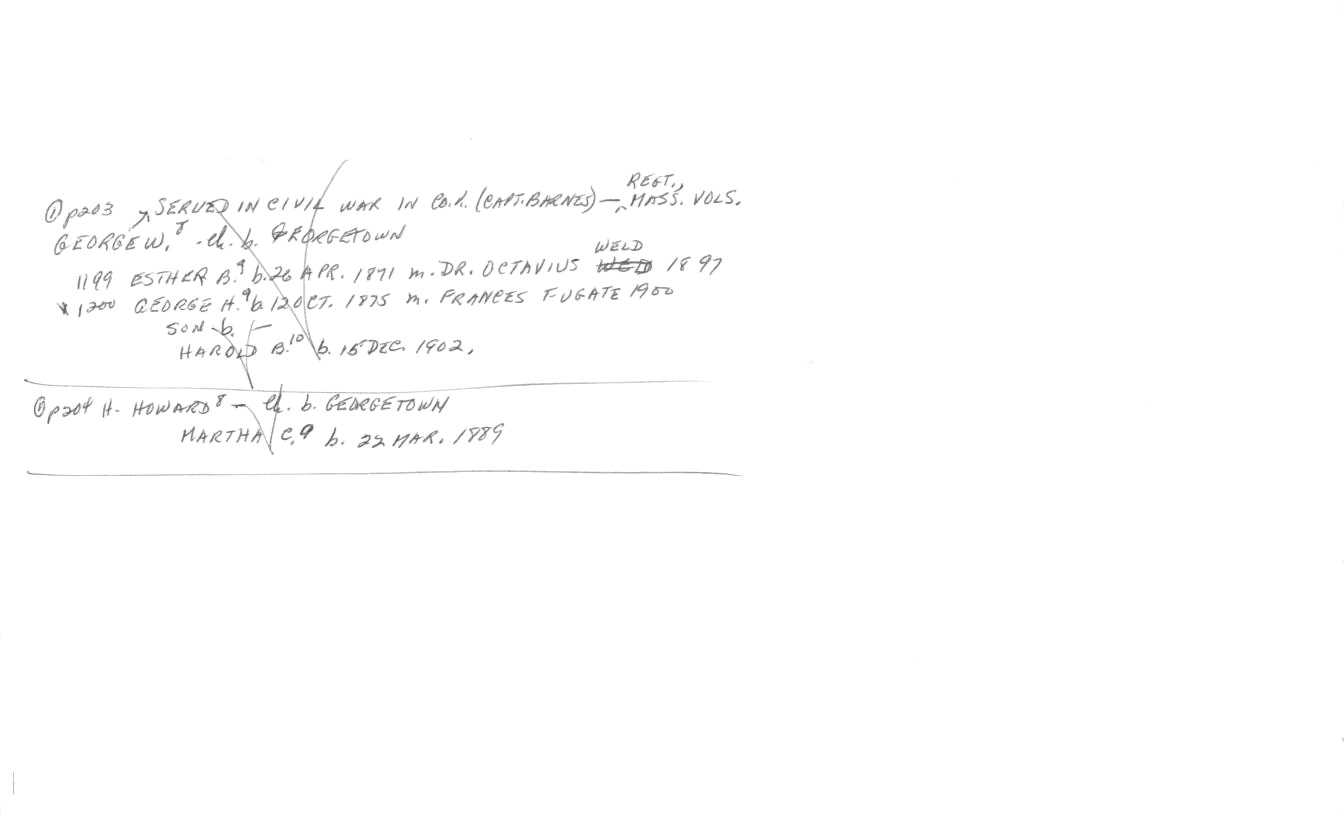 ① p203 SERVED IN CIVIL WAR IN CO. K. (CAPT. BARNES) — REGT., MASS. VOLS.
GEORGE W.⁸ - ch. b. GEORGETOWN
1199 ESTHER B.⁹ b. 26 APR. 1871 m. DR. OCTAVIUS WELD 1897
x 1200 GEORGE H.⁹ b 12 OCT. 1875 m. FRANCES FUGATE 1900
SON b. —
HAROLD B.¹⁰ b. 15 DEC. 1902.
① p204 H. HOWARD⁸ — ch. b. GEORGETOWN
MARTHA C.⁹ b. 22 MAR. 1889